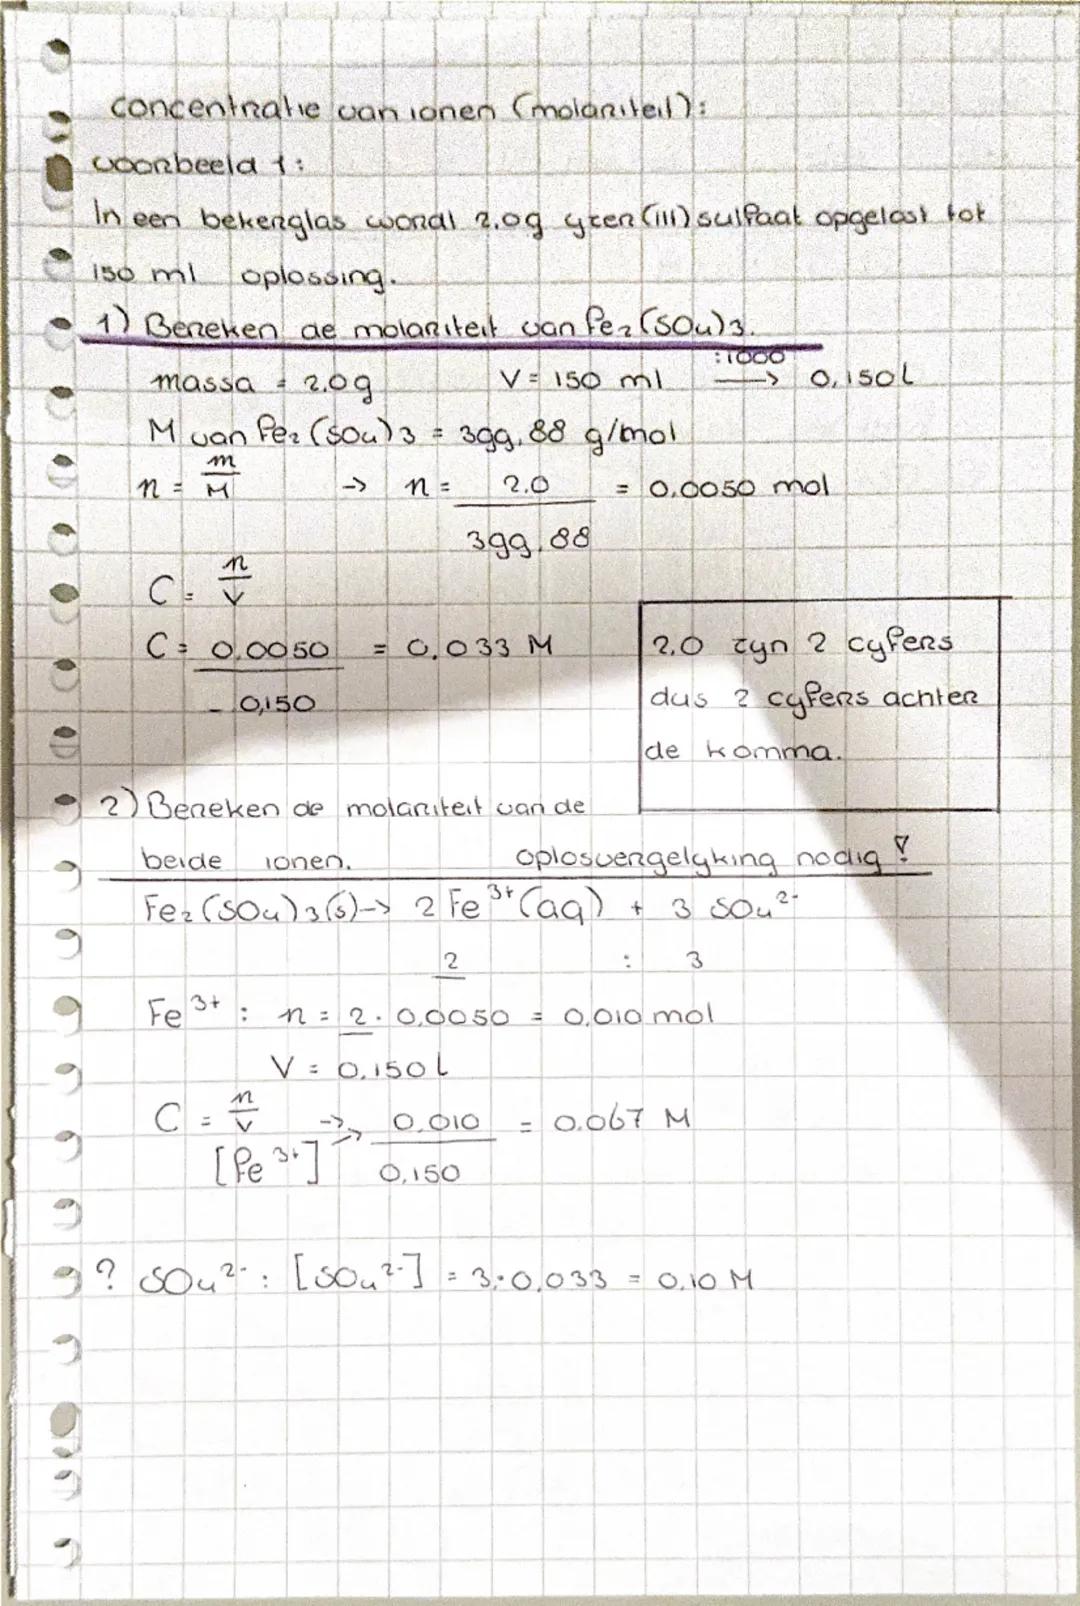 concentratie van ionen (molariteit):
voorbeeld 1:
In een bekerglas wordt 2.0g yzer(III)sulfaat opgelost tot
150 ml oplossing.
1) Bereken de molariteit van Fe₂(SO₄)₃.
massa = 2.0g V = 150 ml :1000 → 0,150L
M van Fe₂(SO₄)₃ = 399,88 g/mol
n = m/M → n = 2.0/399.88 = 0,0050 mol
C = n/V
C = 0,0050/0,150 = 0,033 M
2.0 zyn 2 cyfers
dus 2 cyfers achter
de komma.
2) Bereken de molariteit van de
beide ionen. oplosvergelyking nodig !
Fe₂(SO₄)₃(s) → 2 Fe³⁺(aq) + 3 SO₄²⁻
2 : 3
Fe³⁺ : n = 2 · 0,0050 = 0,010 mol
V = 0.150 L
C = n/V → 0.010/0,150 = 0.067 M
[Fe³⁺] →
? SO₄²⁻ : [SO₄²⁻] = 3·0,033 = 0,10 M